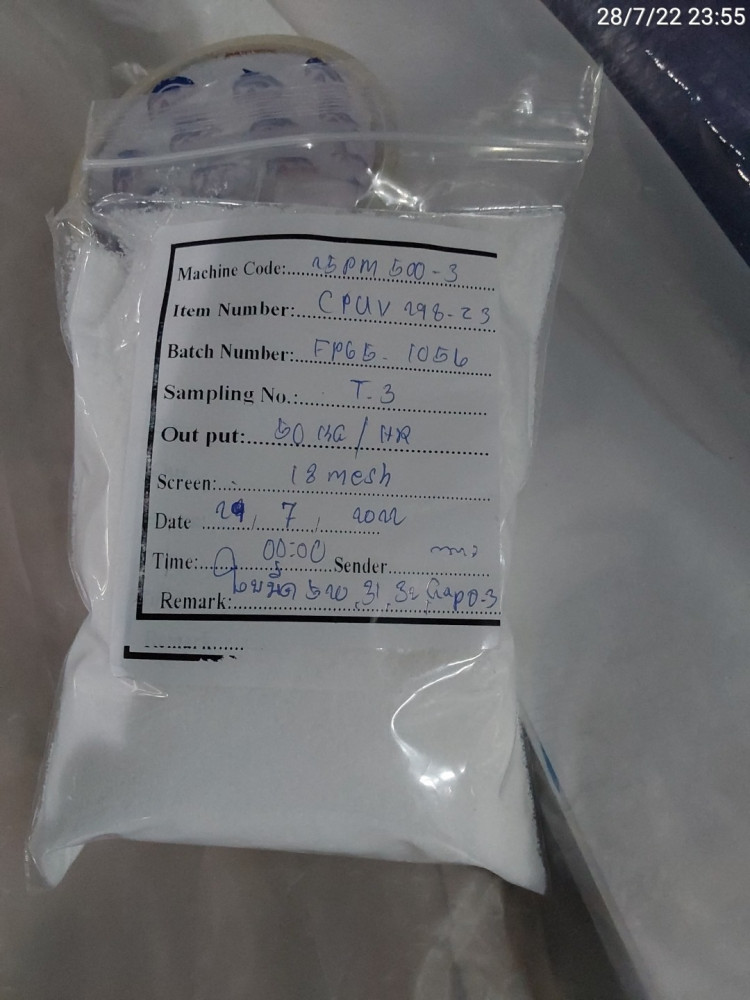 28/7/22 23:55
Machine Code: 25PM 500-3
Item Number: CPUV 298-23
Batch Number: FP65-1056
Sampling No.: T-3
Out put: 50 KG / HR
Screen: 18 mesh
Date 29, 7, 2022
Time: 00:00 Sender
Remark: ใบมีด